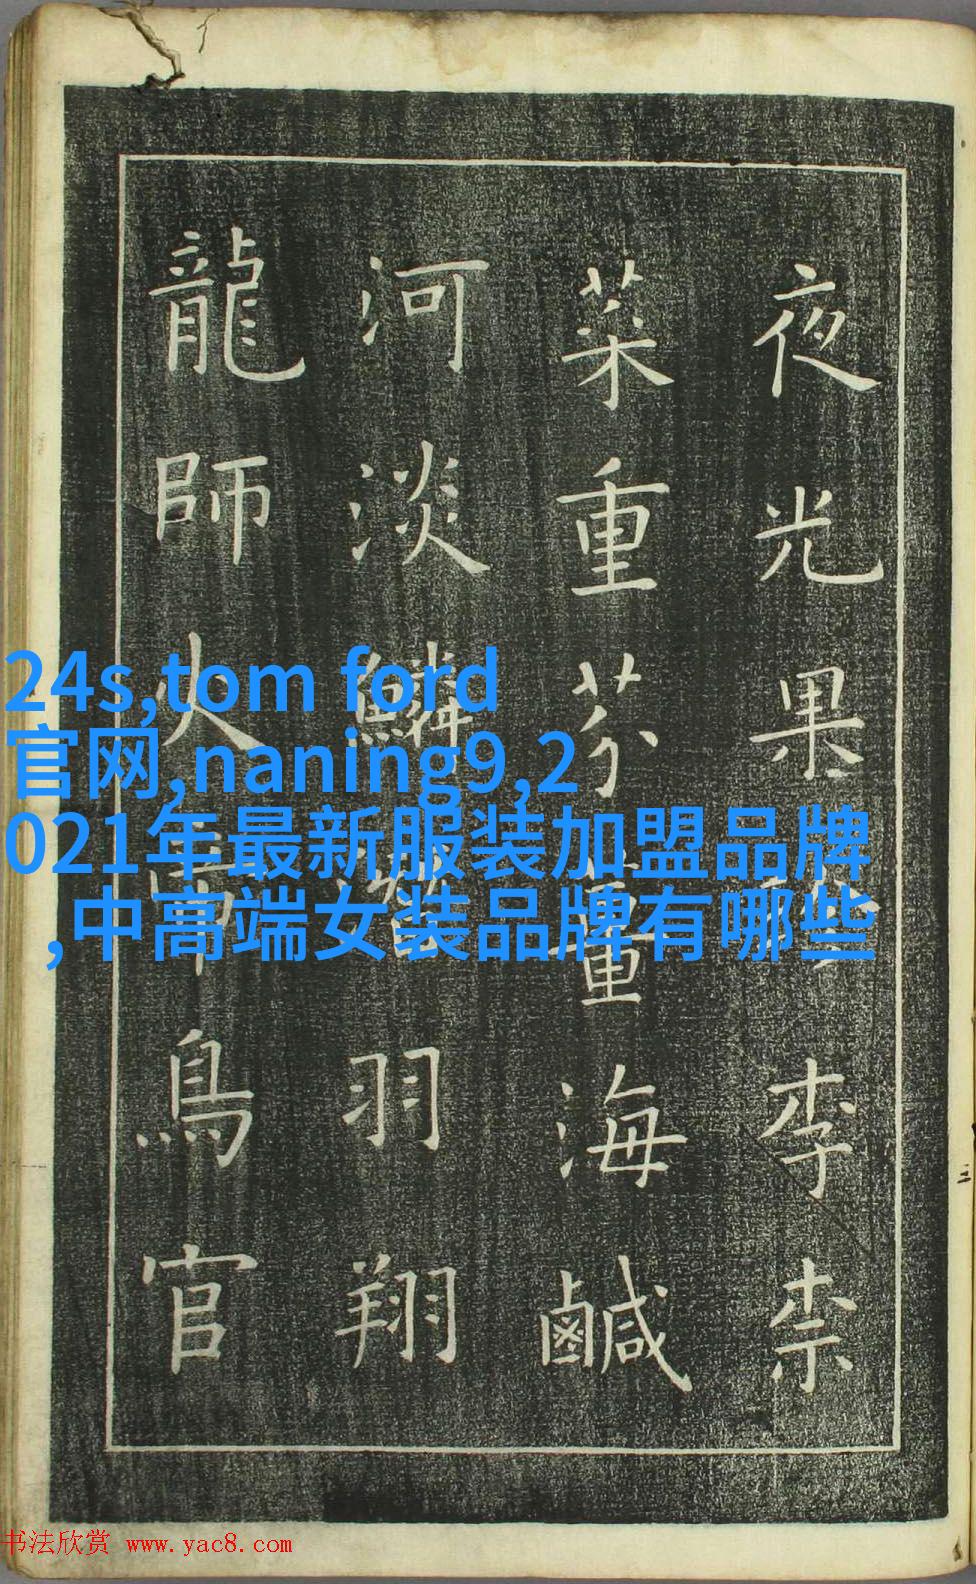 夜光果珍李柰
菜重芥薑海鹹
河淡鱗潛羽翔
龍師火帝鳥官
24s,tom ford
官网,naning9,2
021年最新服装加盟品牌
,中高端女装品牌有哪些
书法欣赏 www.yac8.com